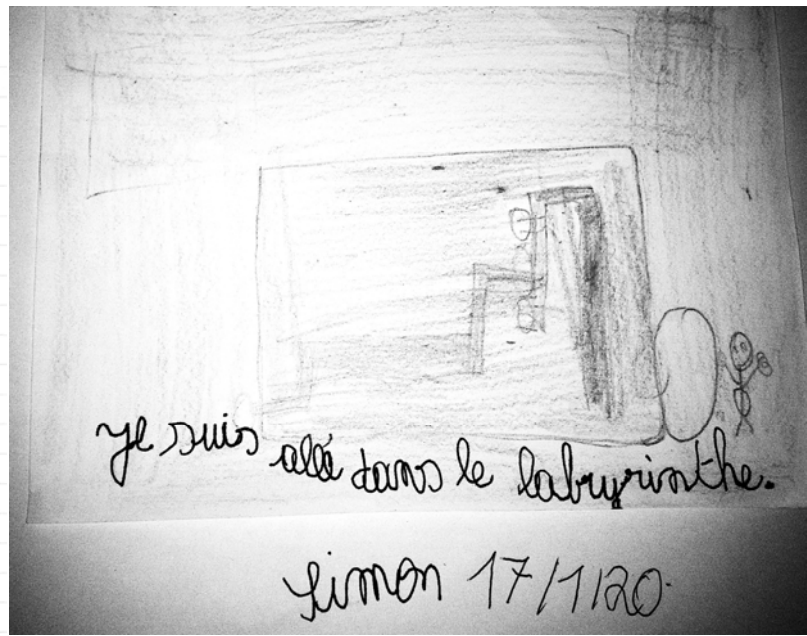 Je suis allé dans le labyrinthe.
Simon 17/1/20